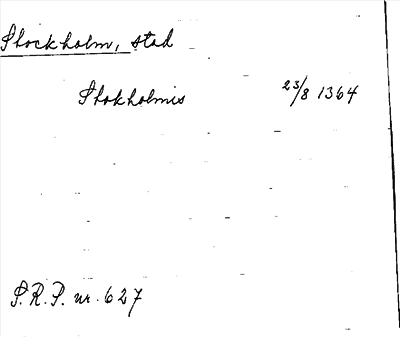 Stockholm, stad
Stokholmis 23/8 1364
S.R.P. nr. 627